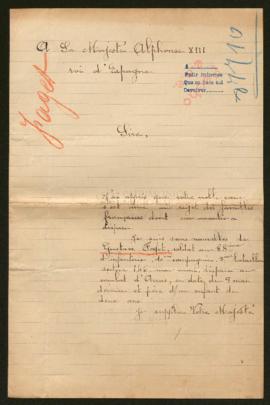 A Sa Majesté Alphonse XIII
roi d'Espagne
A
Pedir informes
Que se hace acá
Devolver
Sire,
J'ai appris que votre noble
s'est ému au sujet des familles
françaises dont un membre a
disparu.
Je suis sans nouvelles de
Gustave soldat au 28ème
d'infanterie, compagnie,
secteur mon mari, disparu au
combat d'Arras, en date du 9 mai
dernier et père d'un enfant de
deux ans.
Je supplie Votre Majesté